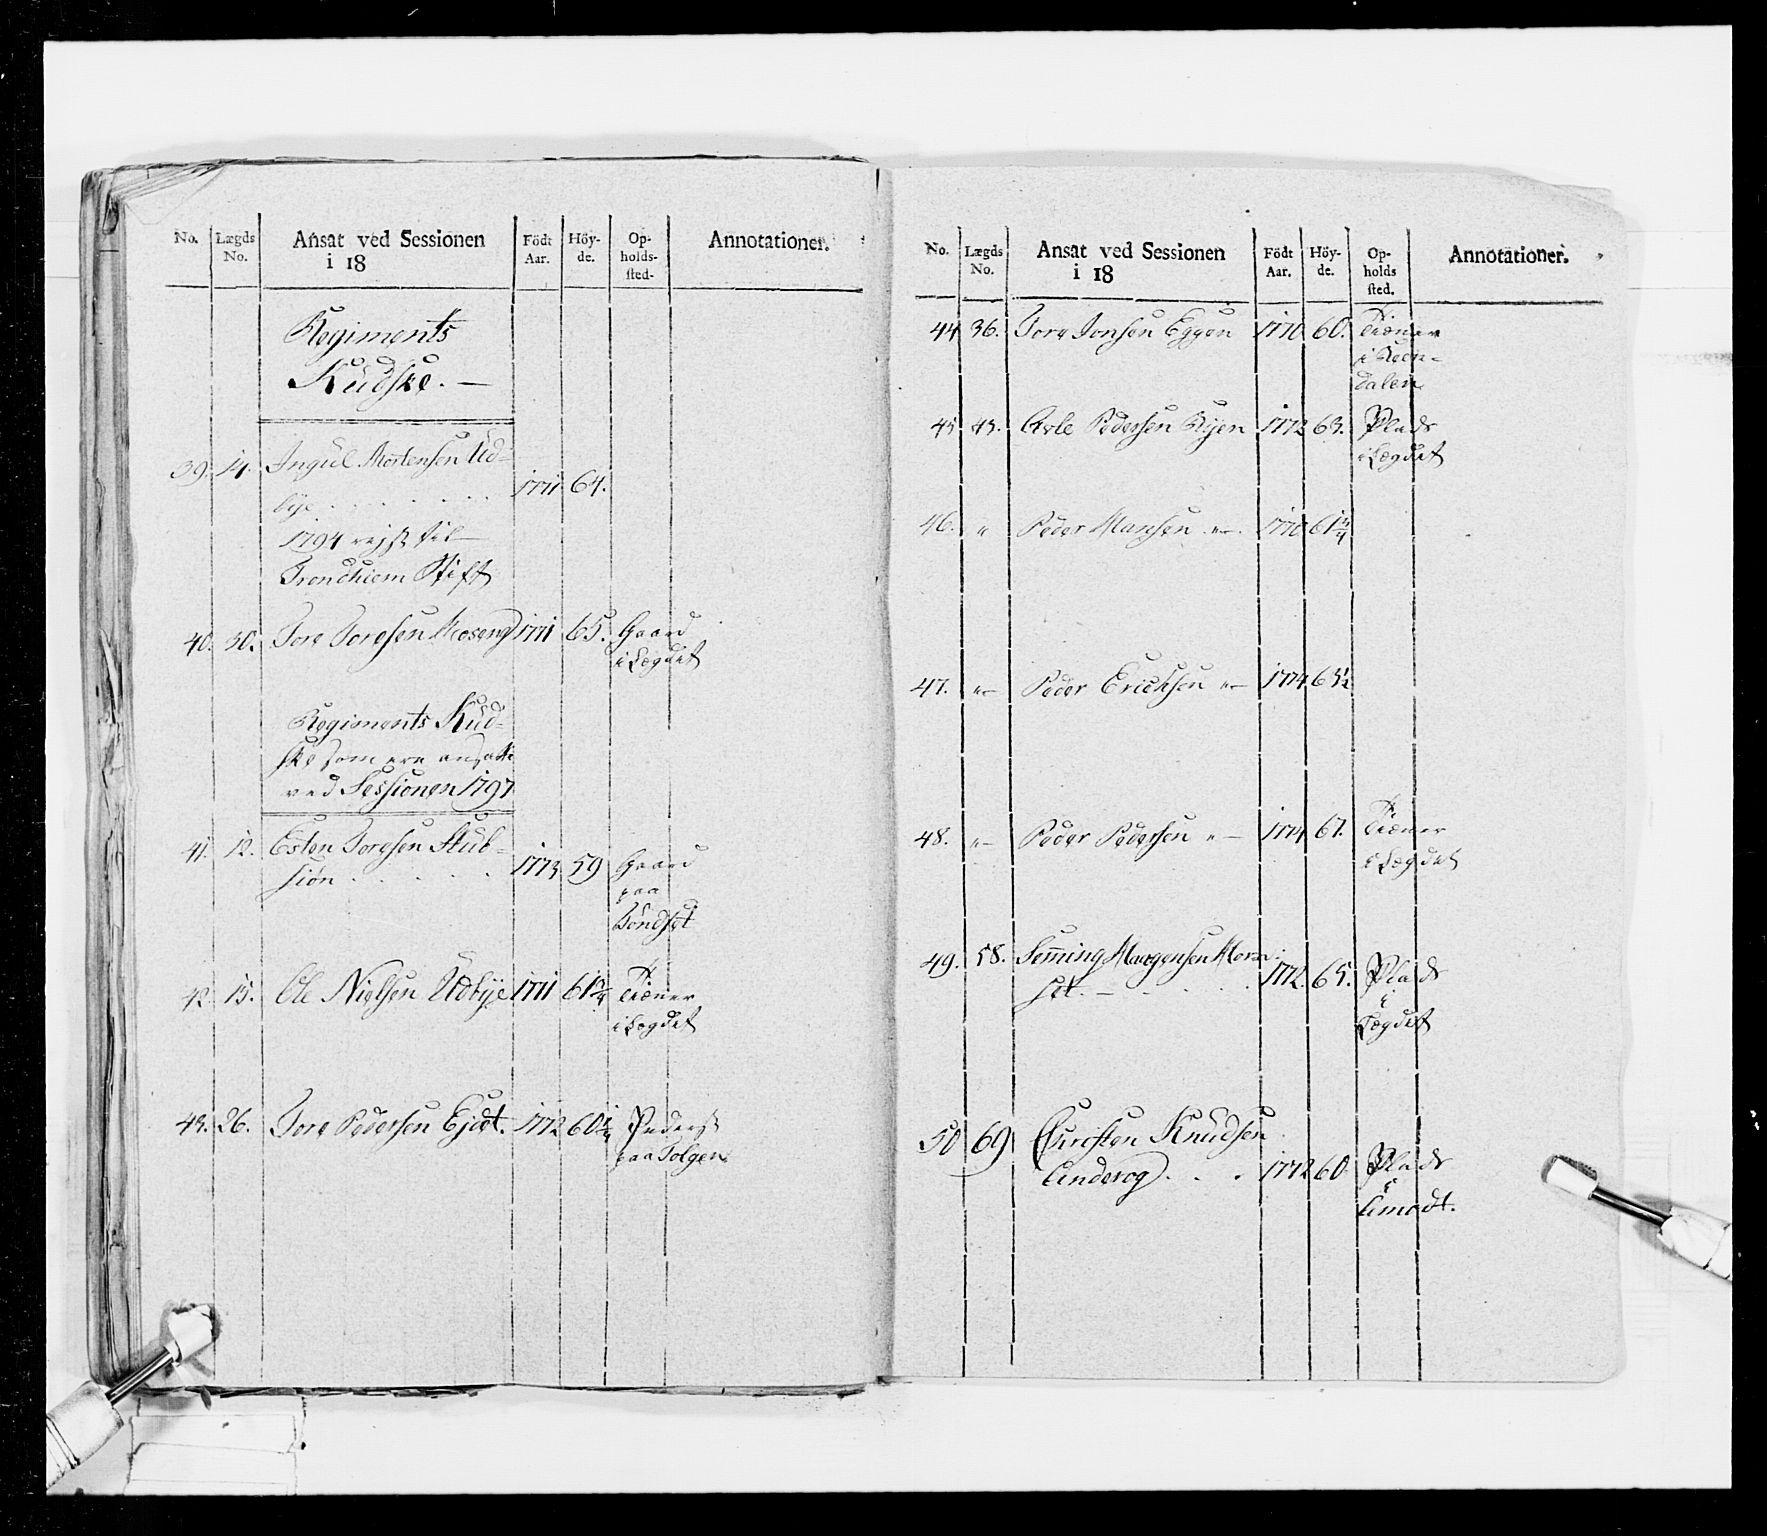 No. Lægds No. Ansat ved Sessionen i 18 Födt Aar. Höy-de. Op-holds-sted- Annotationer.
Regiments
Kudske. —
39. 14. Ingul Mortensen Ud-
bye . . . . . . 1771 64.
1794 rejst til
Trondhiem Stift
40. 30. Tore Toresen Moseng 1771 65. Gaard
i Lægdet
Regiments Kud-
ske som ere ansatte
ved Sessionen 1797
41. 12. Esten Toresen Stub-
siön . . . . . 1773 59 Gaard
paa
Töndset
42 15. Ole Nielsen Udbye 1771 61 Tiæner
i Lægdet
43. 26. Tore Pedersen Ejdet. 1772 60
paa Tolgen
No. Lægds No. Ansat ved Sessionen i 18 Födt Aar. Höy-de. Op-holds sted. Annotationer.
44 36. Tore Jonsen Eggen 1770 60. Tiæner
i Reen-
dalen
45 43. Pedersen Ryen 1772 63. Plads
i Lægdet
46. " Peder Hansen "—. 1770 61
47. "— Peder Erichsen "— 1774 63½
48. "— Peder Pedersen "— 1774 67. Tiæner
i Lægdet
49. 58. Semming
set. — . . . . 1772. 65. Plads
i
Lægdet
50 69 Christen Knudsen
Anderog . . . 1772 60 Plads
i
Amodt.